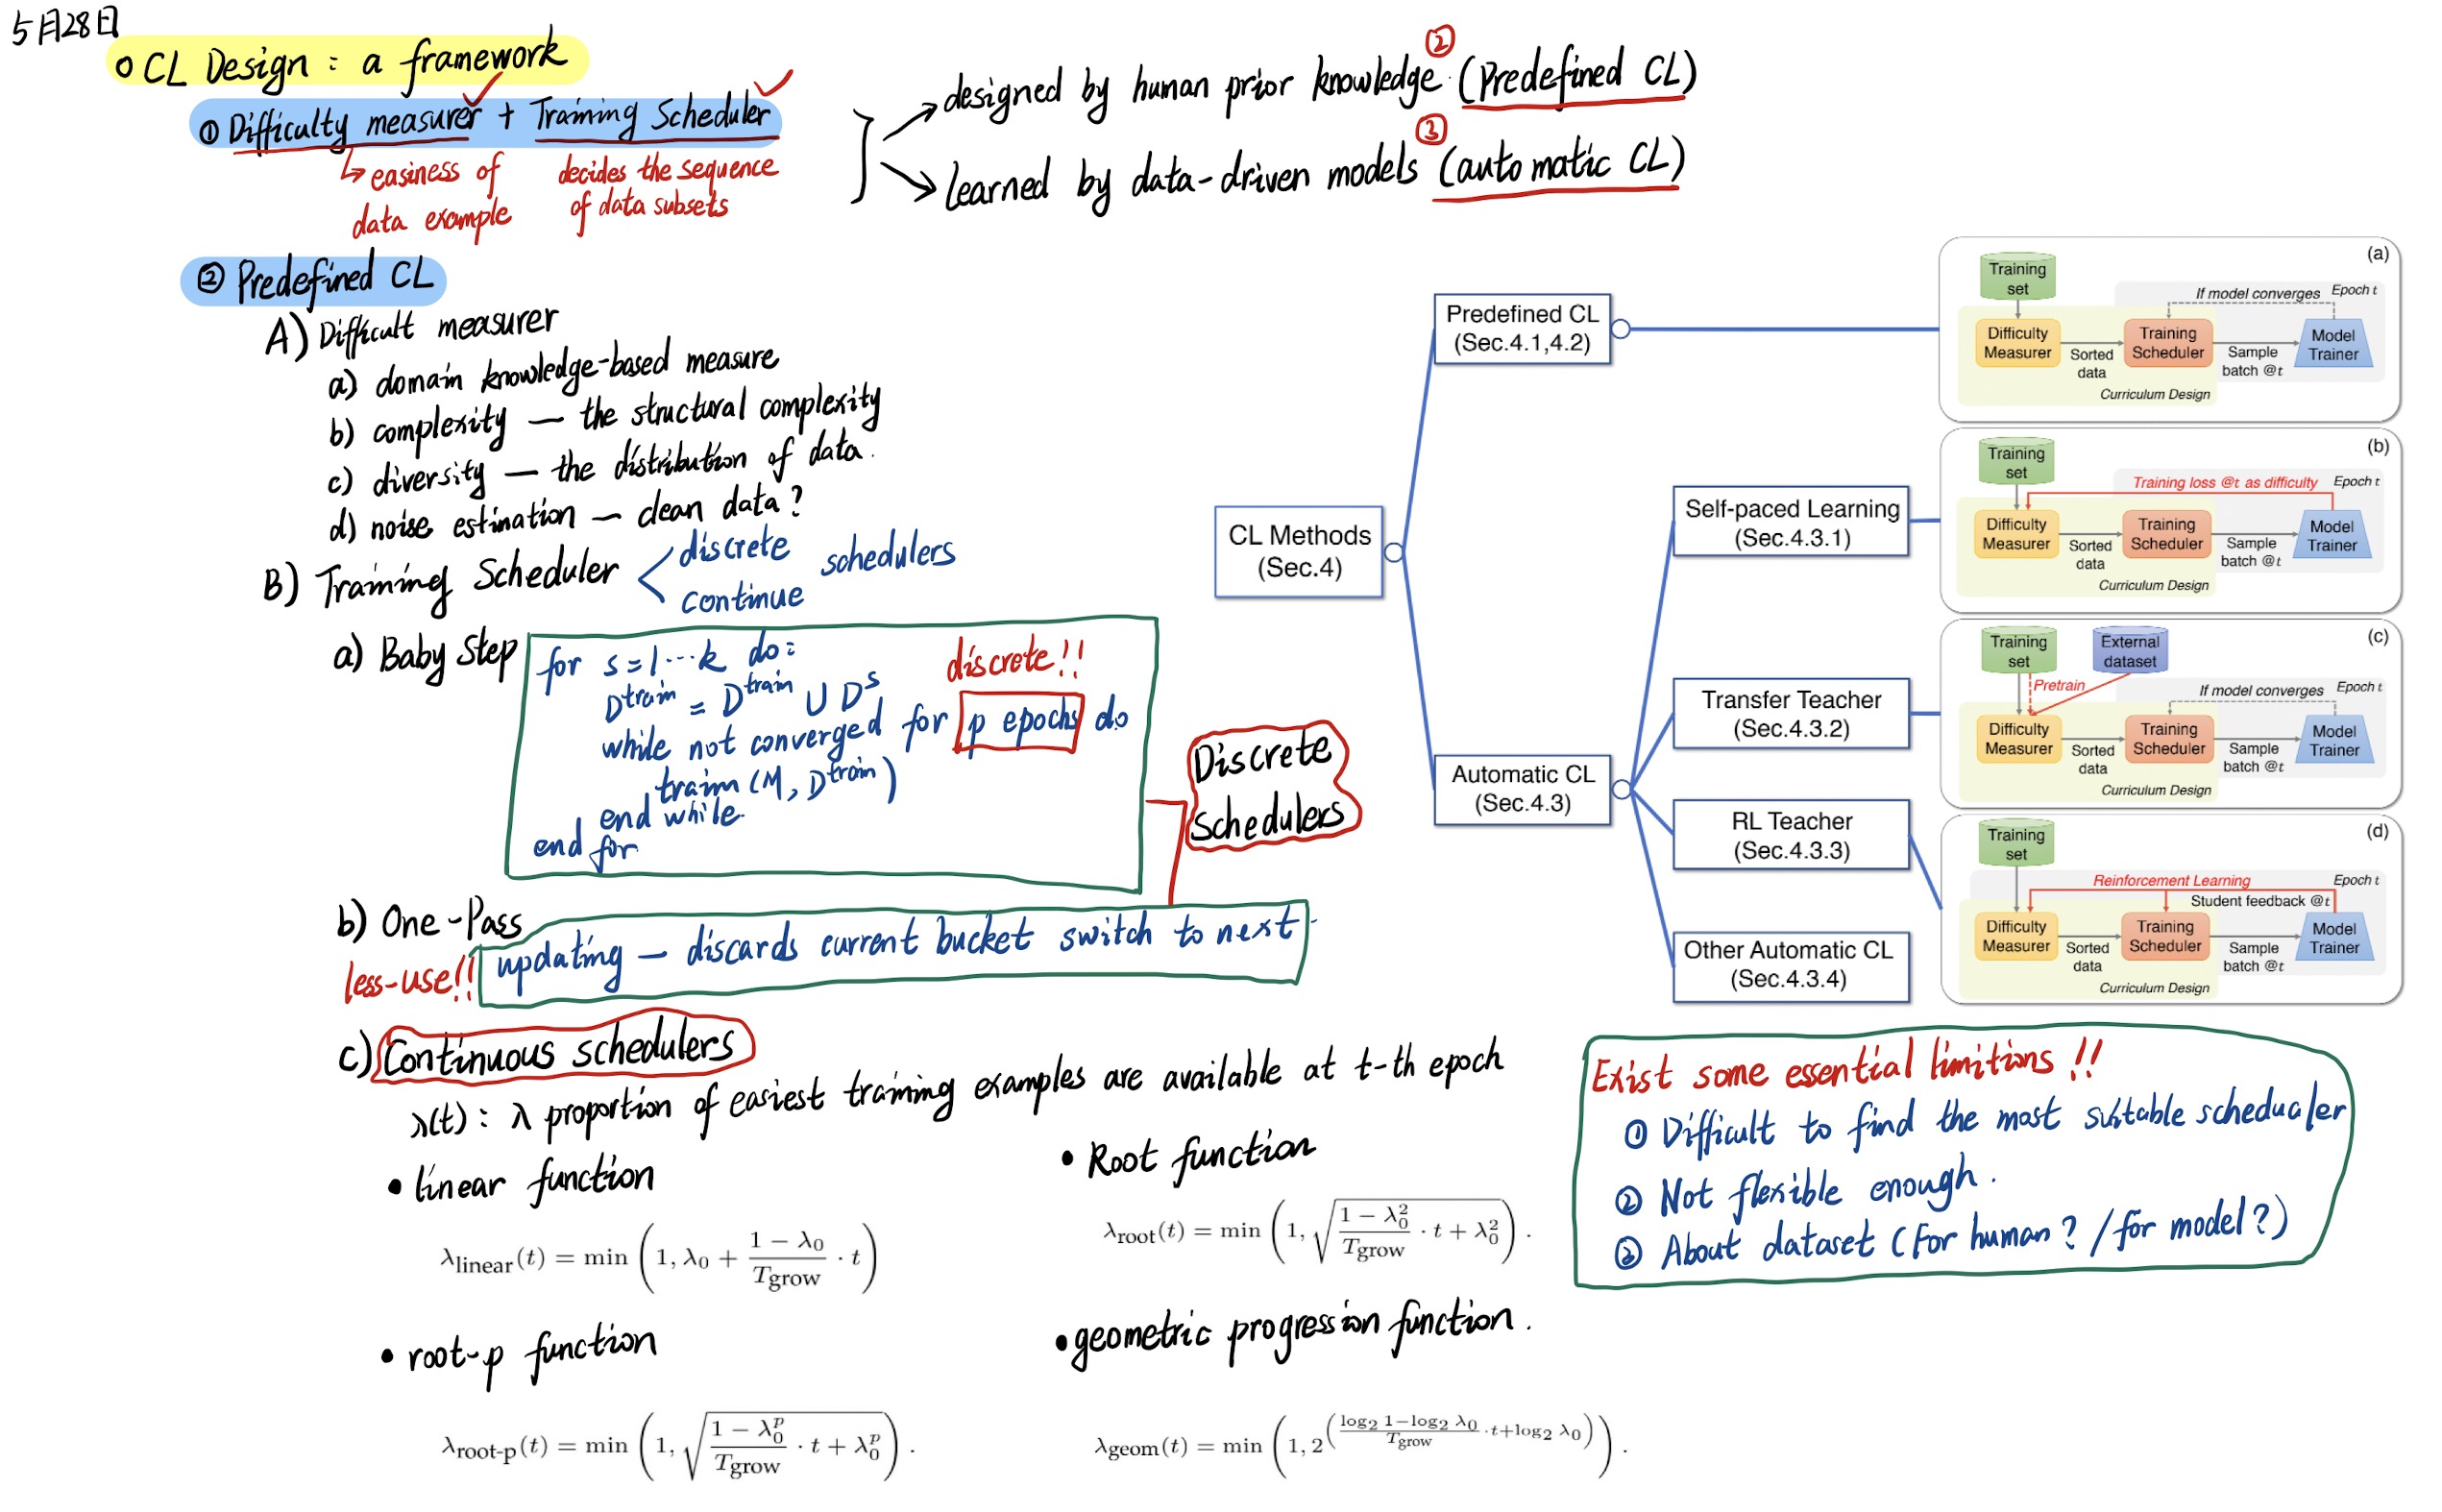 5月28日
CL Design : a framework
① Difficulty measurer + Training Scheduler
↳ easiness of data example
decides the sequence of data subsets
→ designed by human prior knowledge ② (Predefined CL)
→ learned by data-driven models ③ (automatic CL)
② Predefined CL
A) Difficult measurer
a) domain knowledge-based measure
b) complexity — the structural complexity
c) diversity — the distribution of data.
d) noise estination — clean data?
B) Training Scheduler
discrete
continue
schedulers
a) Baby Step
for s=1···k do:
D^train = D^train ∪ D^s
while not converged for p epochs do
train (M, D^train)
end while.
end for
discrete!!
Discrete
schedulers
b) One-Pass
less-use!!
updating — discards current bucket switch to next.
c) Continuous schedulers
λ(t): λ proportion of easiest training examples are available at t-th epoch
• linear function
λ_linear(t) = min (1, λ_0 + (1 − λ_0)/T_grow · t)
• Root function
λ_root(t) = min (1, √((1 − λ_0^2)/T_grow · t + λ_0^2)) .
• root-p function
λ_root-p(t) = min (1, √((1 − λ_0^p)/T_grow · t + λ_0^p)) .
• geometric progression function.
λ_geom(t) = min (1, 2^((log_2 1−log_2 λ_0)/T_grow ·t+log_2 λ_0)) .
CL Methods
(Sec.4)
Predefined CL
(Sec.4.1,4.2)
Automatic CL
(Sec.4.3)
Self-paced Learning
(Sec.4.3.1)
Transfer Teacher
(Sec.4.3.2)
RL Teacher
(Sec.4.3.3)
Other Automatic CL
(Sec.4.3.4)
(a)
Training set
If model converges
Epoch t
Difficulty Measurer
Sorted data
Training Scheduler
Sample batch @t
Model Trainer
Curriculum Design
(b)
Training set
Training loss @t as difficulty
Epoch t
Difficulty Measurer
Sorted data
Training Scheduler
Sample batch @t
Model Trainer
Curriculum Design
(c)
Training set
External dataset
Pretrain
If model converges
Epoch t
Difficulty Measurer
Sorted data
Training Scheduler
Sample batch @t
Model Trainer
Curriculum Design
(d)
Training set
Reinforcement Learning
Epoch t
Student feedback @t
Difficulty Measurer
Sorted data
Training Scheduler
Sample batch @t
Model Trainer
Curriculum Design
Exist some essential limitions !!
① Difficult to find the most suitable schedualer
② Not flexible enough.
③ About dataset (For human? / for model?)